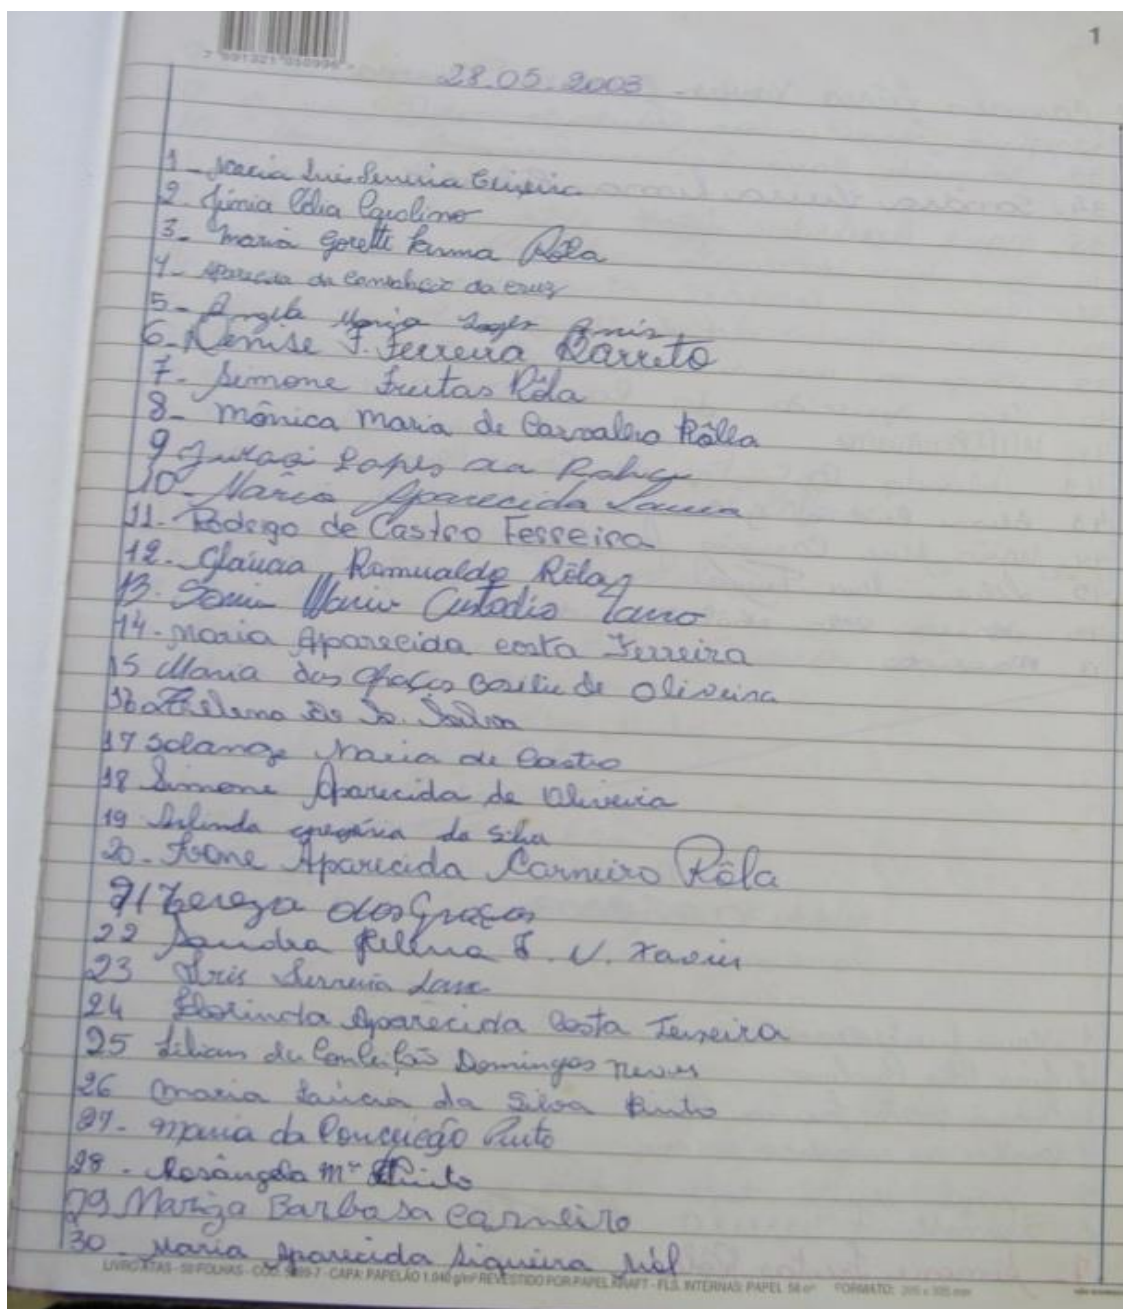 1
7 891321 050996
28.05.2003
1 - Maria Luis Ferreira Teixeira
2. Júnia Célia Carolino
3 - Maria Goretti Rôla
4 - Aparecida da Conceição da Cruz
5 - Angela Maria
6 - Denise F. Ferreira Barreto
7 - Simone Freitas Rôla
8 - Mônica Maria de Carvalho Rôlla
9 Lopes da
10 - Maria Aparecida
11. Rodrigo de Castro Ferreira
12. Gláucia Romualdo Rôla
13. Sonia Maria Custodio Lauro
14 - Maria Aparecida costa Ferreira
15 Maria das Graças de Oliveira
16 da Silva
17 Solange Maria de Castro
18 Simone Aparecida de Oliveira
19 Arlinda gregória da Silva
20 - Ivone Aparecida Carneiro Rôla
21 Tereza das Graças
22 Sandra F. V. Xavier
23 Iris Ferreira
24 Florinda Aparecida Costa Teixeira
25 Lilian da Conceição Domingos Neves
26 Maria da Silva Pinto
27 - Maria da Conceição Pinto
28 - Rosângela Mª Pinto
29 Mariza Barbosa Carneiro
30 - Maria Aparecida Siqueira
LIVRO ATAS - 50 FOLHAS - CAPA: PAPELÃO 1.040 g/m² REVESTIDO POR PAPEL KRAFT - FLS. INTERNAS: PAPEL 56 g/m² FORMATO: